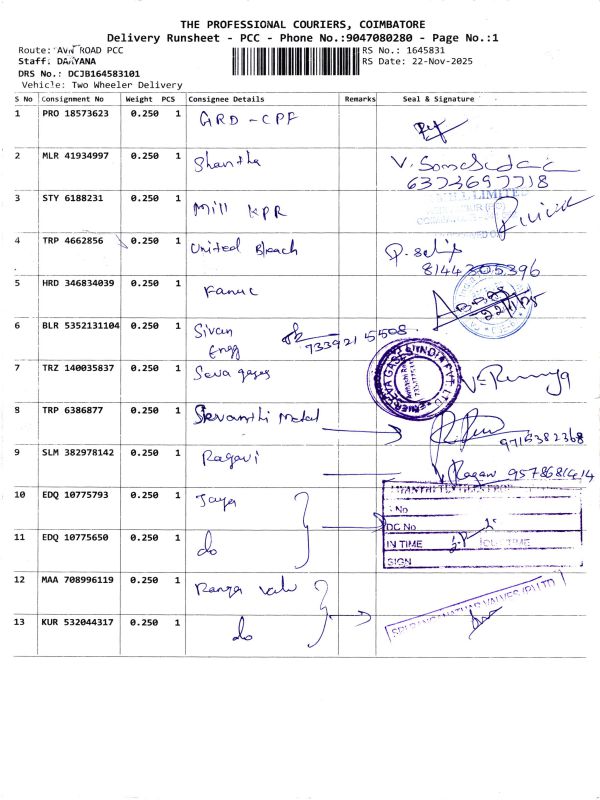 THE PROFESSIONAL COURIERS, COIMBATORE
Delivery Runsheet - PCC - Phone No.:9047080280 - Page No.:1
Route: ROAD PCC
RS No.: 1645831
Staff:
RS Date: 22-Nov-2025
DRS No.: DCJB164583101
Vehicle: Two Wheeler Delivery
S No Consignment No Weight PCS Consignee Details Remarks Seal & Signature
1 PRO 18573623 0.250 1 GRD - CPF
2 MLR 41934997 0.250 1 Shantha
6373697718
3 STY 6188231 0.250 1 Mill KPR
MILL LIMITED
4 TRP 4662856 0.250 1 United Bleach
8144305396
5 HRD 346834039 0.250 1 Fanuc
22/11/25
6 BLR 5352131104 0.250 1 Sivan
Engg 7339215508
7 TRZ 140035837 0.250 1 Seva gases
8 TRP 6386877 0.250 1 Sevanthi Metal
9715382368
9 SLM 382978142 0.250 1 Ragavi
Ragavi 9578681414
10 EDQ 10775793 0.250 1 Jaya
No
DC No
11 EDQ 10775650 0.250 1 do
IN TIME
SIGN
12 MAA 708996119 0.250 1 Ranga valv
SRI RANGANATHAR VALVES (P) LTD
13 KUR 532044317 0.250 1 do